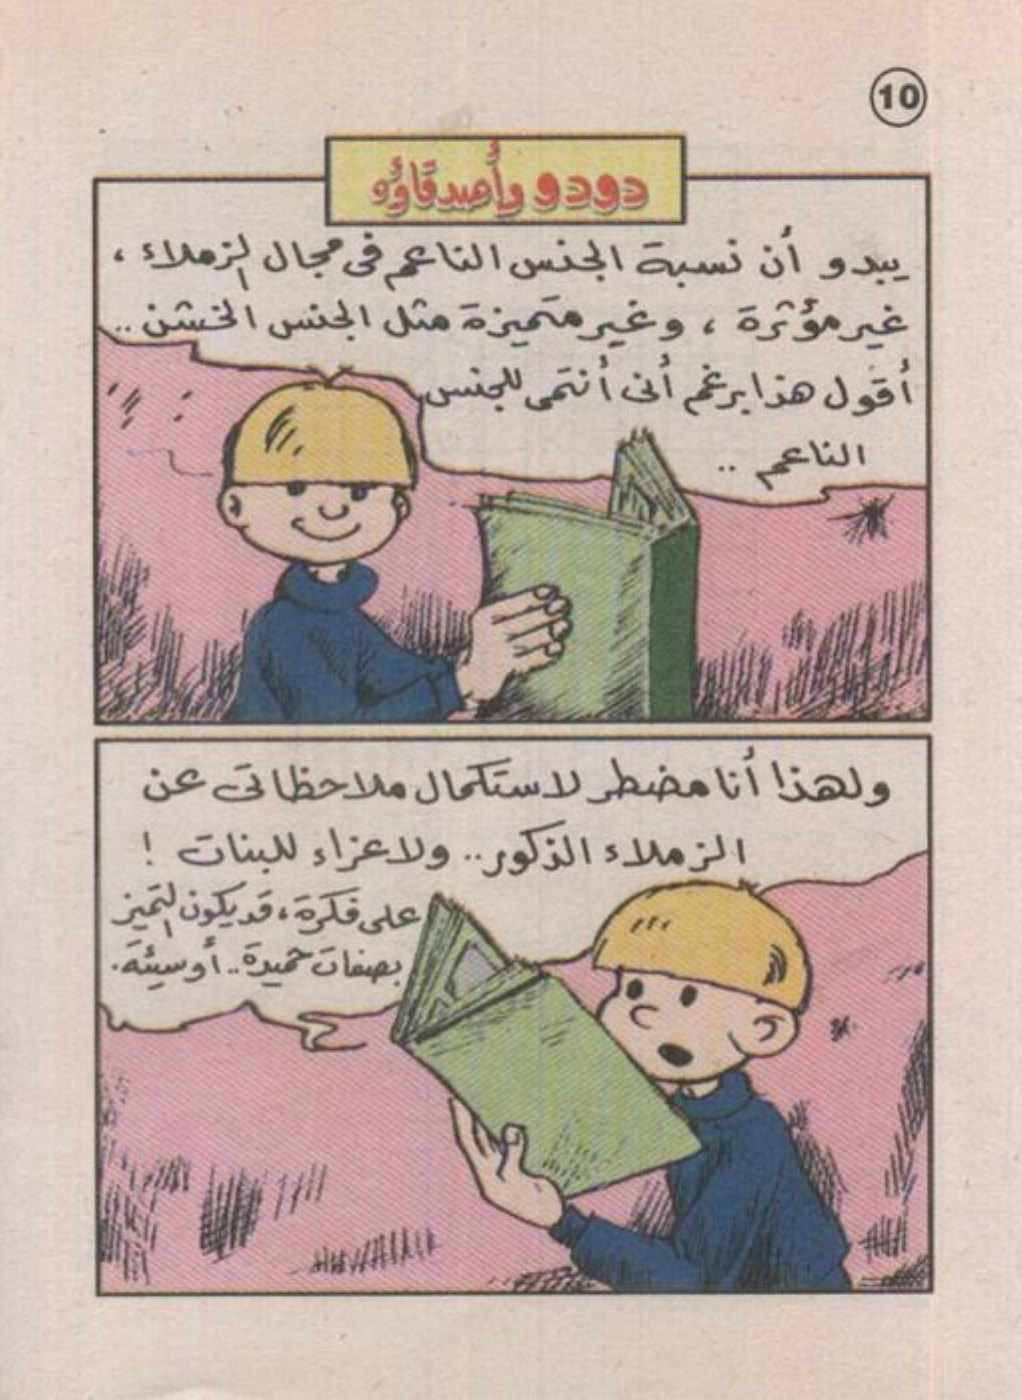 10
دودو وأصدقاؤه
يبدو أن نسبة الجنس الناعم فى مجال الزملاء ،
غير مؤثرة ، وغير متميزة مثل الجنس الخشن ..
أقول هذا برغم أنى أنتمى للجنس
الناعم ..
ولهذا أنا مضطر لاستكمال ملاحظاتى عن
الزملاء الذكور .. ولا عزاء للبنات !
على فكرة ، قد يكون التميز
بصفات حميدة .. أو سيئة .